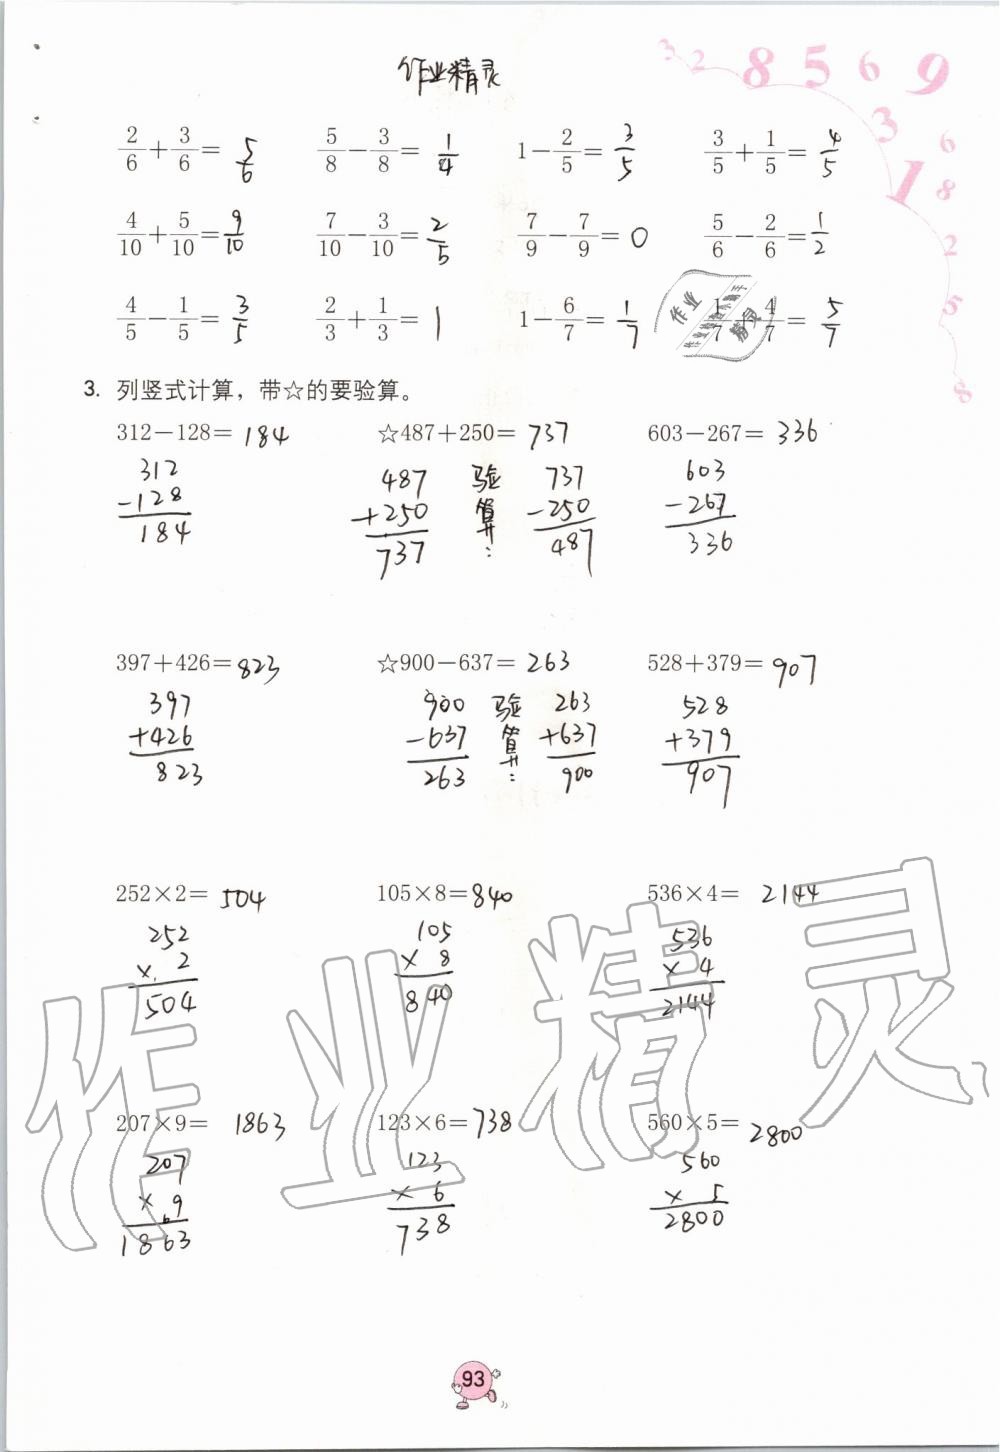 作业精灵
3 2 8 5 6 9
3 6
1 8
2
5
8
2/6+3/6= 5/6 5/8-3/8= 1/4 1-2/5= 3/5 3/5+1/5= 4/5
4/10+5/10= 9/10 7/10-3/10= 2/5 7/9-7/9= 0 5/6-2/6= 1/2
4/5-1/5= 3/5 2/3+1/3= 1 1-6/7= 1/7 1/7+4/7= 5/7
作业
精灵
3. 列竖式计算，带☆的要验算。
312-128= 184 ☆487+250= 737 603-267= 336
312 487 验 737 603
-128 +250 算 -250 -267
184 737 : 487 336
397+426= 823 ☆900-637= 263 528+379= 907
397 900 验 263 528
+426 -637 算 +637 +379
823 263 : 900 907
252×2= 504 105×8= 840 536×4= 2144
252 105 536
× 2 × 8 × 4
504 840 2144
作业精灵
207×9= 1863 123×6= 738 560×5= 2800
207 123 560
× 6 9 × 6 × 5
1863 738 2800
93